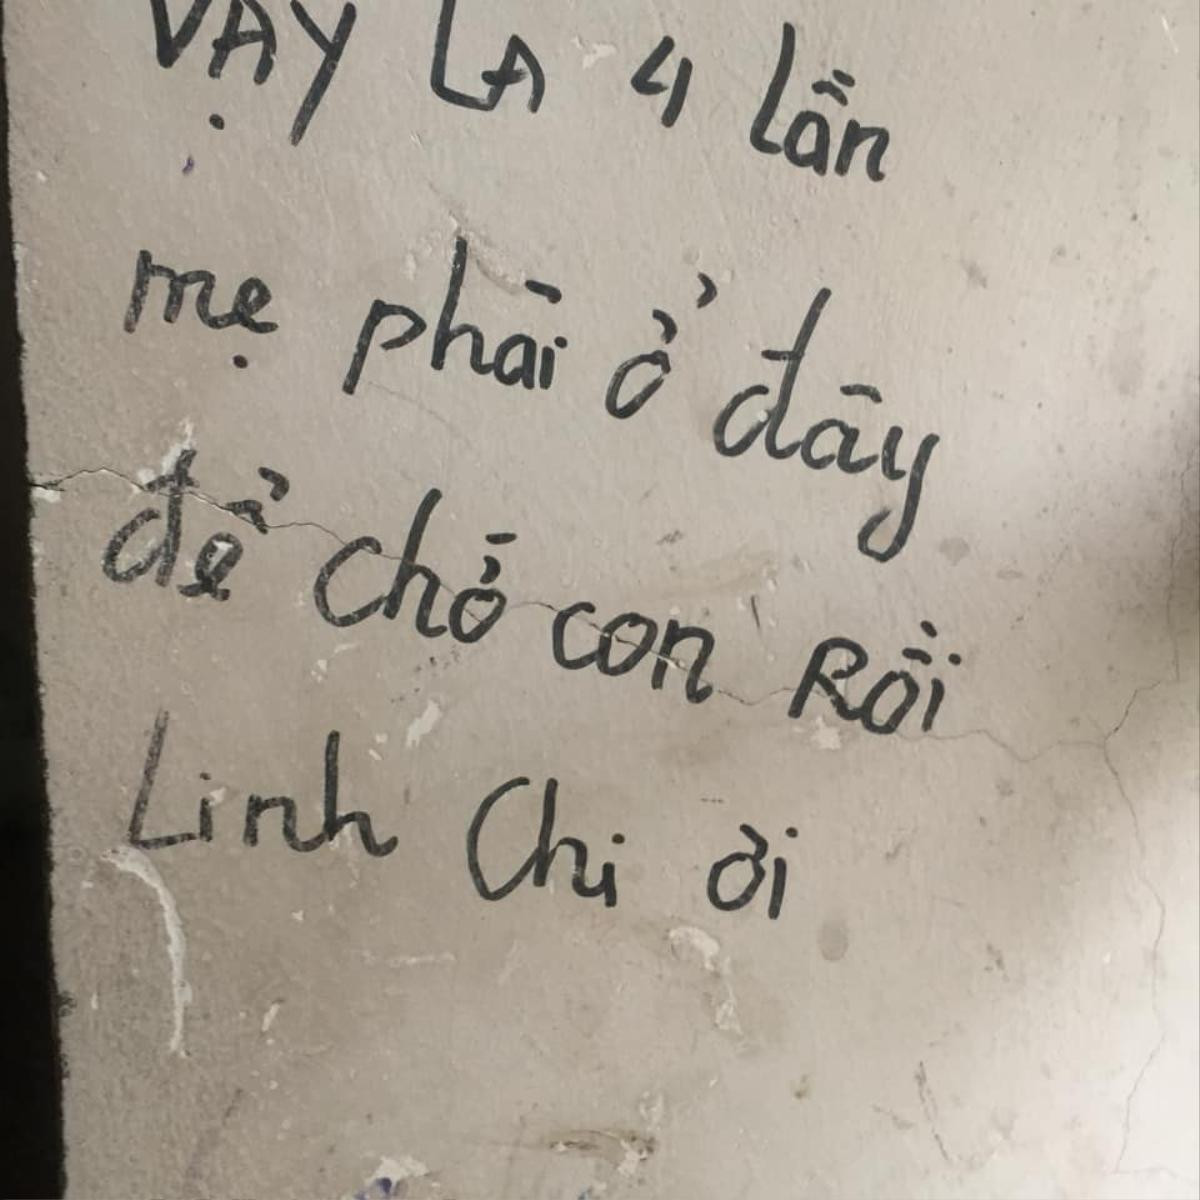 VẬY LA 4 lần
mẹ phải ở đây
để chờ con Rồi
Linh Chi ơi